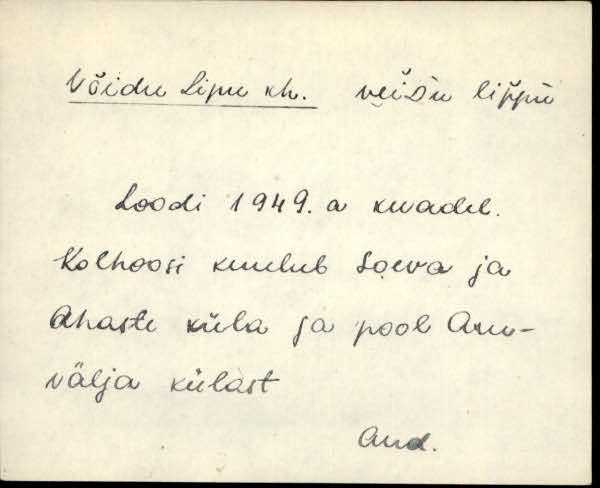 Võidu Lipu kh. veiDu lippu
Loodi 1949. a kevadel.
Kolhoosi kuulub Soeva ja
Ahaste küla ja pool Aru-
välja külast
And.